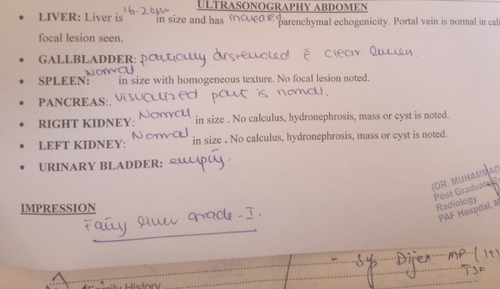 ULTRASONOGRAPHY ABDOMEN
• LIVER: Liver is 16.2cm in size and has increased parenchymal echogenicity. Portal vein is normal in cali
focal lesion seen.
• GALLBLADDER: partially distended c̄ clear lumen.
• SPLEEN: Normal in size with homogeneous texture. No focal lesion noted.
• PANCREAS:. visualized part is normal.
• RIGHT KIDNEY: Normal in size . No calculus, hydronephrosis, mass or cyst is noted.
• LEFT KIDNEY: Normal in size . No calculus, hydronephrosis, mass or cyst is noted.
• URINARY BLADDER: empty.
IMPRESSION
Fatty liver grade - I.
(DR. MUHAMMAD
Post Graduate
Radiology
PAF Hospital,
- Syp Dijex MP (1+1
TSF
Family History